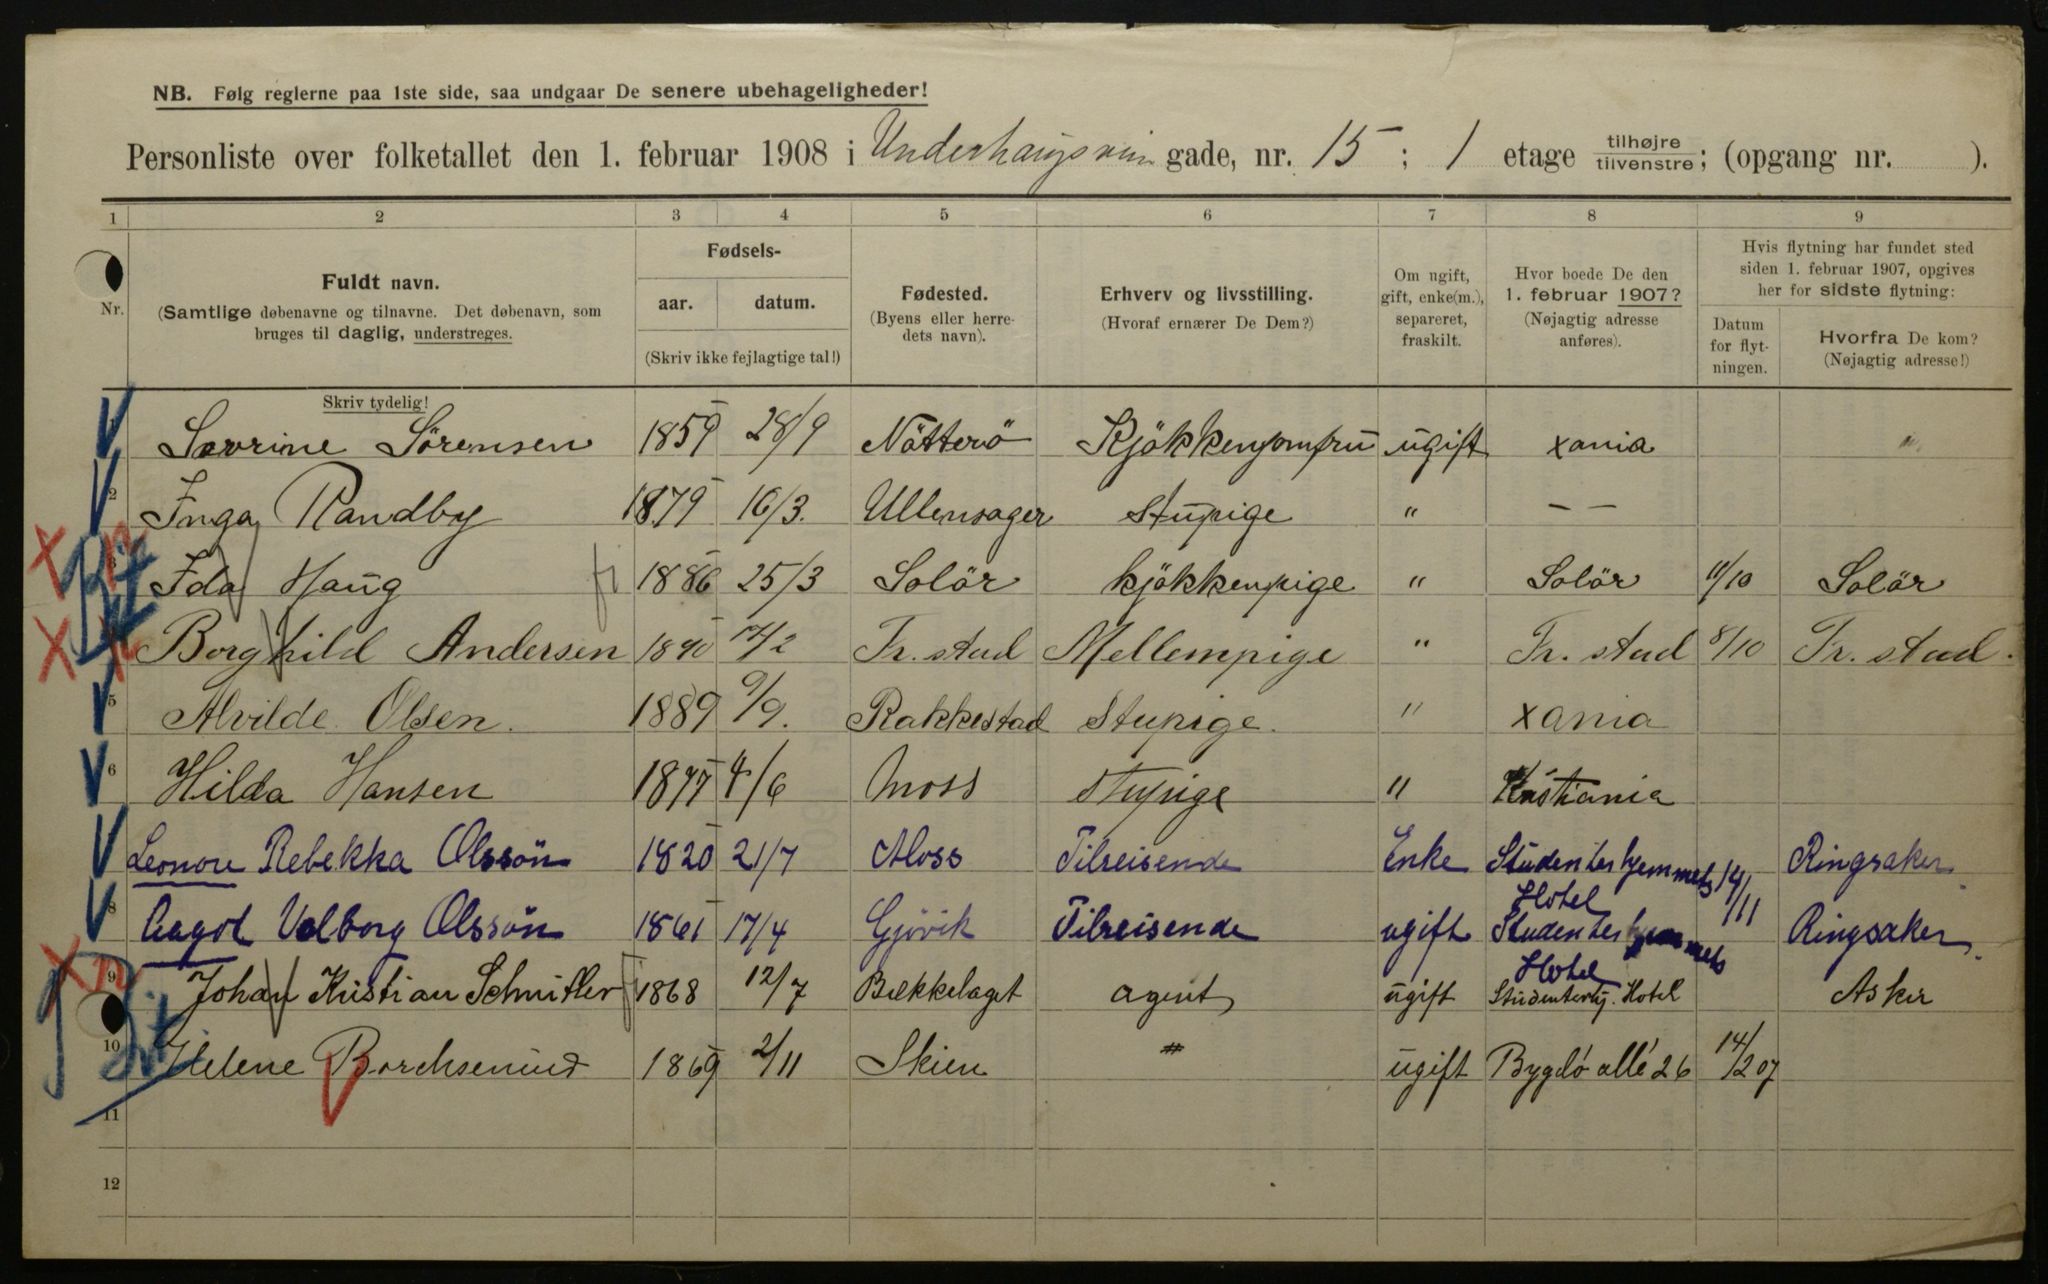 NB. Følg reglerne paa 1ste side, saa undgaar De senere ubehageligheder!
Personliste over folketallet den 1. februar 1908 i Underhaugsvein gade, nr. 15 ; 1 etage tilhøjre tilvenstre; (opgang nr. ).
1 2 3 4 5 6 7 8 9
Nr.
Fuldt navn.
(Samtlige døbenavne og tilnavne. Det døbenavn, som
bruges til daglig, understreges.
Skriv tydelig!
Fødsels-
aar. datum.
(Skriv ikke fejlagtige tal!)
Fødested.
(Byens eller herre-
dets navn).
Erhverv og livsstilling.
(Hvoraf ernærer De Dem?)
Om ugift,
gift, enke(m.),
separeret,
fraskilt.
Hvor boede De den
1. februar 1907?
(Nøjagtig adresse
anføres).
Hvis flytning har fundet sted
siden 1. februar 1907, opgives
her for sidste flytning:
Datum
for flyt-
ningen.
Hvorfra De kom?
(Nøjagtig adresse!)
Sørensen 1859 28/9 Nötterö Kjökkenjomfru ugift xania
2 Inga Randby 1879 16/3. Ullensager Stupige " — —
3 Ida Haug 1886 25/3 Solör kjökkenpige " Solör 11/10 Solör
Borghild Andersen 1890 17/2 Fr. stad Mellempige " Fr. stad 8/10 Fr. stad.
5 Alvilde Olsen. 1889 9/9. Rakkestad Stupige. " xania
6 Hilda Hansen 1877 4/6 Moss Stupige " Kristiania
Leonore Rebekka Olssön 1820 21/7 Moss Tilreisende Enke Studenterhjemmets Hotel 14/11 Ringsaker.
8 Aagot Valborg Olssön 1861 17/4 Gjövik Tilreisende ugift Studenterhjemmets Hotel Ringsaker.
9 Johan Kristian Schnitler 1868 12/7 Bækkelaget agent ugift Studenterhj. Hotel Asker
10 Helene 1869 2/11 Skien " ugift Bygdö allé 26 14/2 07
11
12